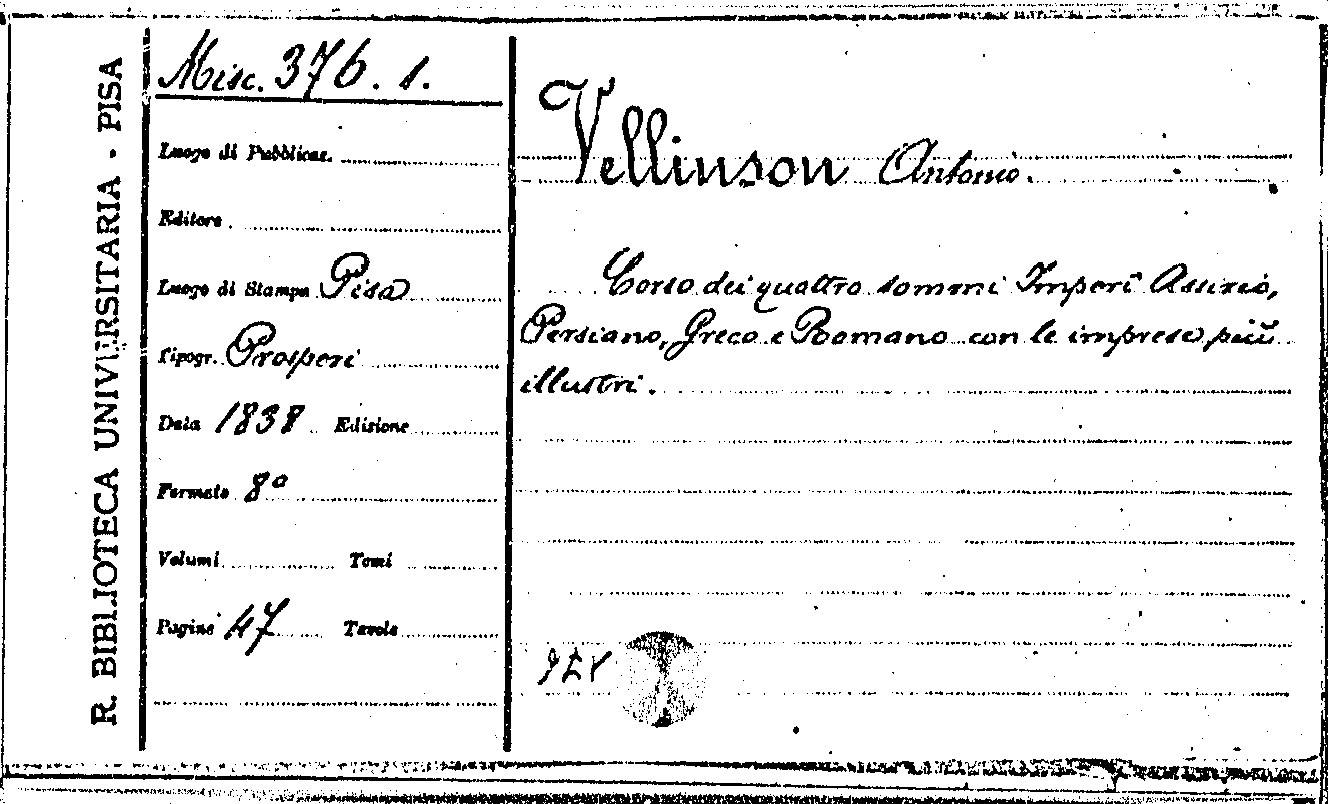 R. BIBLIOTECA UNIVERSITARIA - PISA
Misc. 376. 1.
Luogo di Pubblicaz.
Editore
Luogo di Stampa Pisa
Tipogr. Prosperi
Data 1838 Edizione
Formato 8º
Volumi Tomi
Pagine 47 Tavole
Vellinson Antonio.
Corso dei quattro sommi Imperi Assirio,
Persiano, Greco e Romano con le imprese più
illustri.